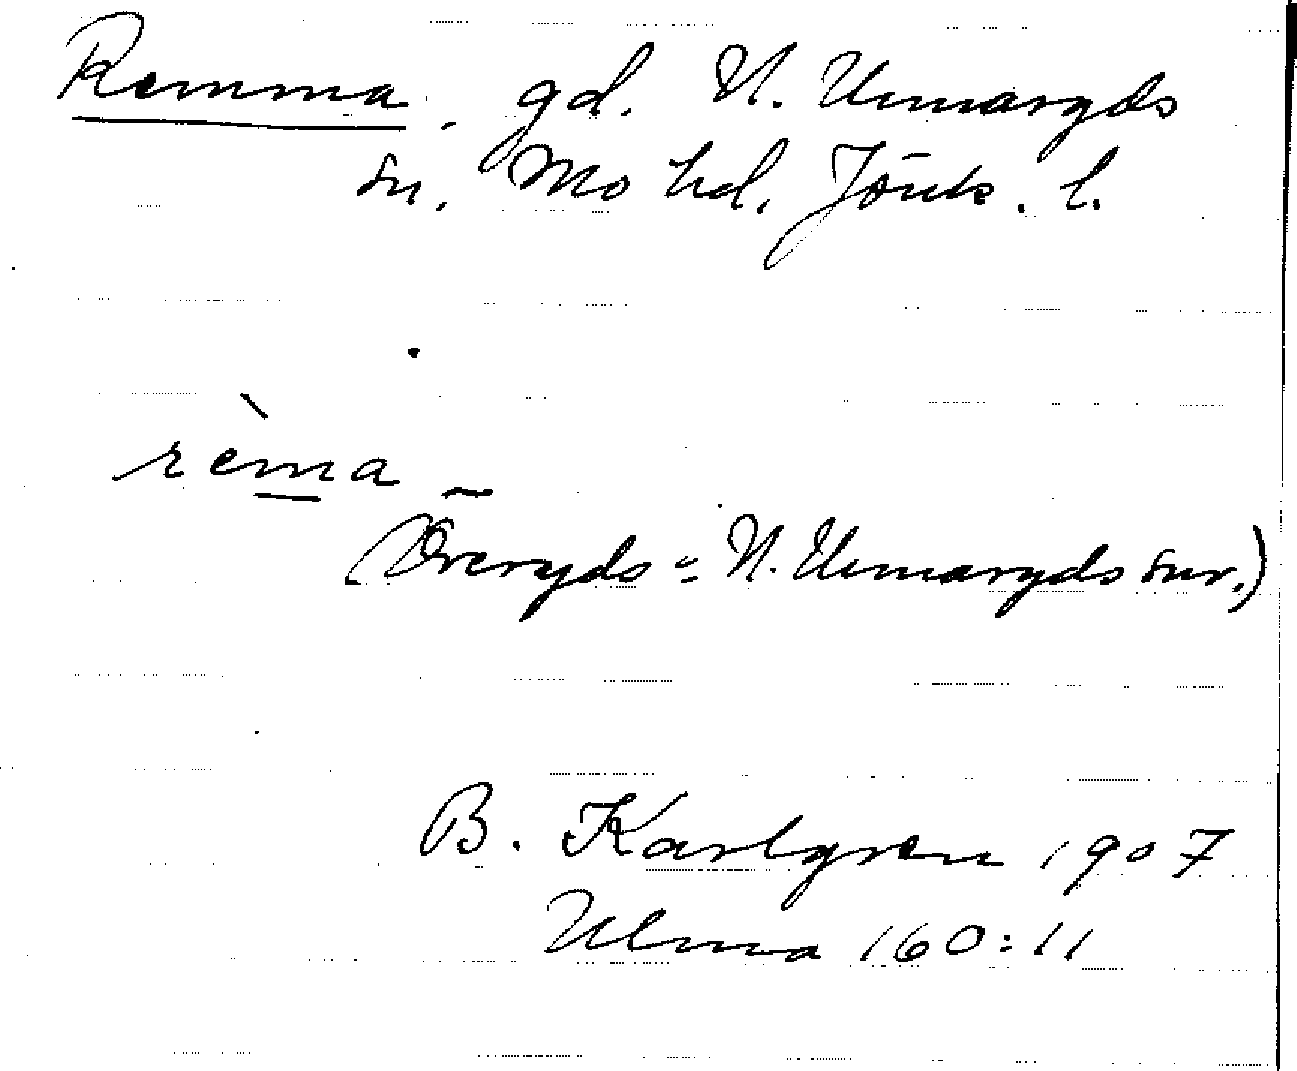 Remma, gd. N. Unnaryds
sn, Mo hd, Jönk. l.
rèma
(Öreryds- N. Unnaryds snr.)
B. Karlgren 1907
Ulma 160:11